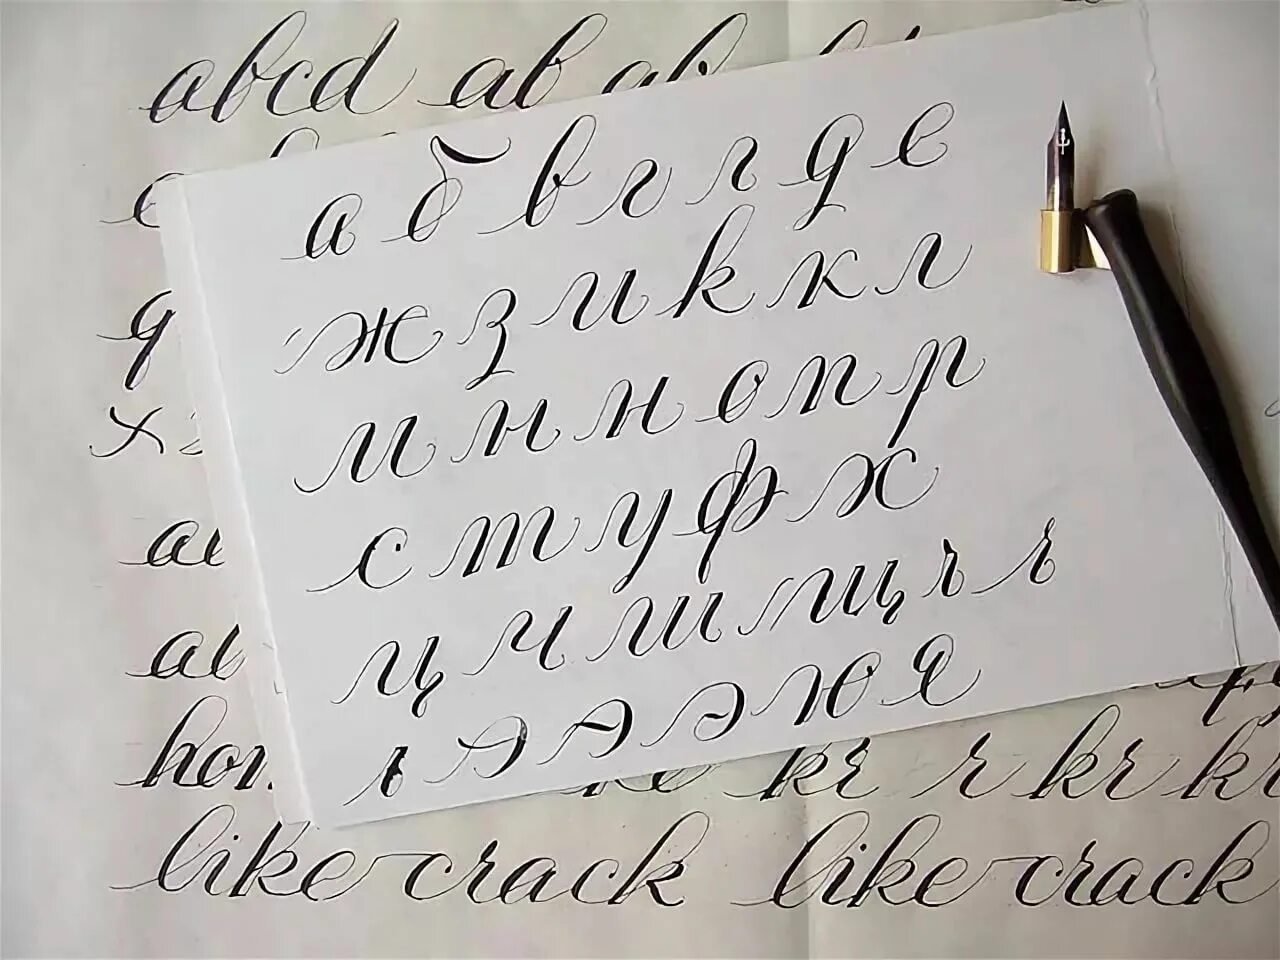 abcd ab ab
а б в г г д е
ж з и к к л
м н н о п р
с т у ф х
ц ч ш щ ч ъ
ь э э э ю я
hon
kr r kr
like crack like crack